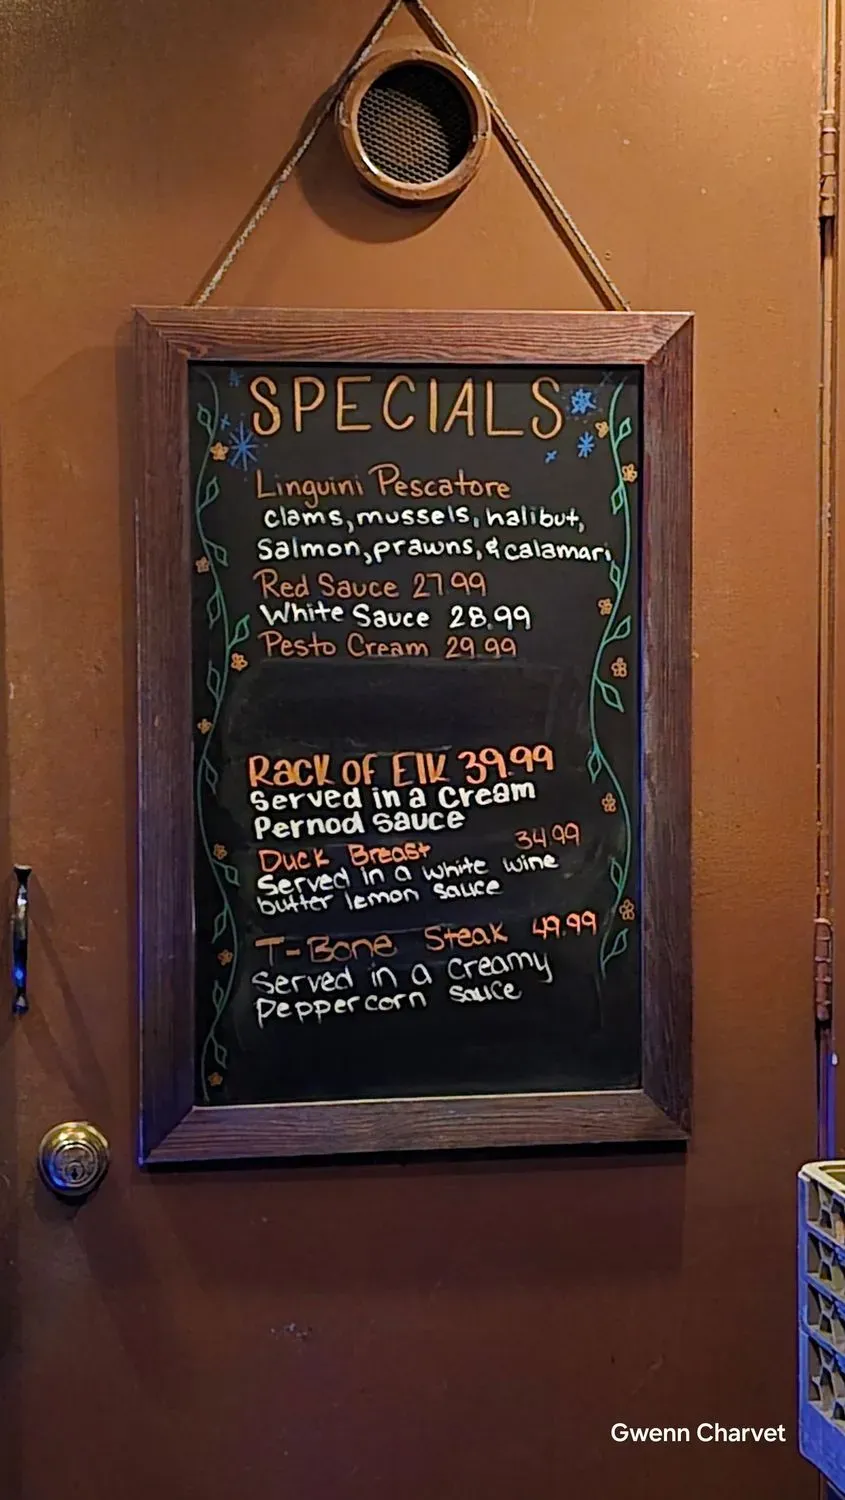 SPECIALS
Linguini Pescatore
clams, mussels, halibut,
Salmon, prawns, & calamari
Red Sauce 27.99
White Sauce 28.99
Pesto Cream 29.99
Rack of Elk 39.99
Served in a Cream
Pernod Sauce
Duck Breast 34.99
Served in a white wine
butter lemon sauce
T-Bone Steak 49.99
Served in a Creamy
Peppercorn sauce
Gwenn Charvet